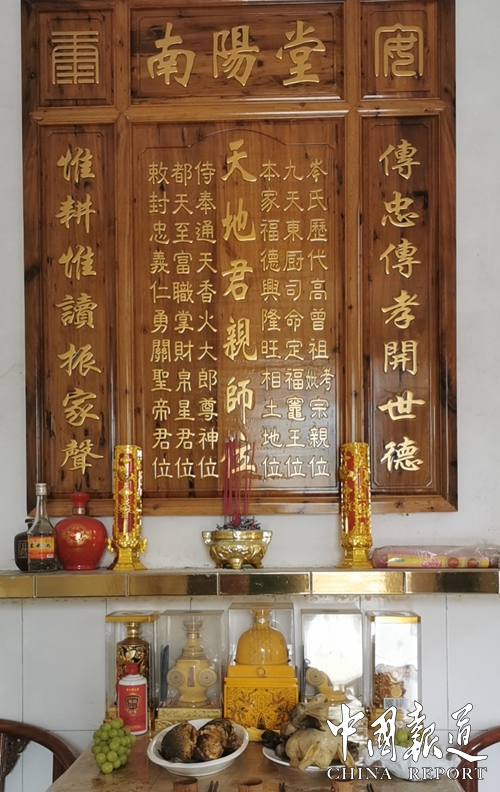 南陽堂
傳忠傳孝開世德
岑氏歷代高曾祖考妣宗親位
九天東厨司命定福竈王位
本家福德興隆旺相土地位
天地君親師位
侍奉通天香火大郎尊神位
都天至富職掌財帛星君位
敕封忠義仁勇關聖帝君位
惟耕惟讀振家聲
中國報道
CHINA REPORT